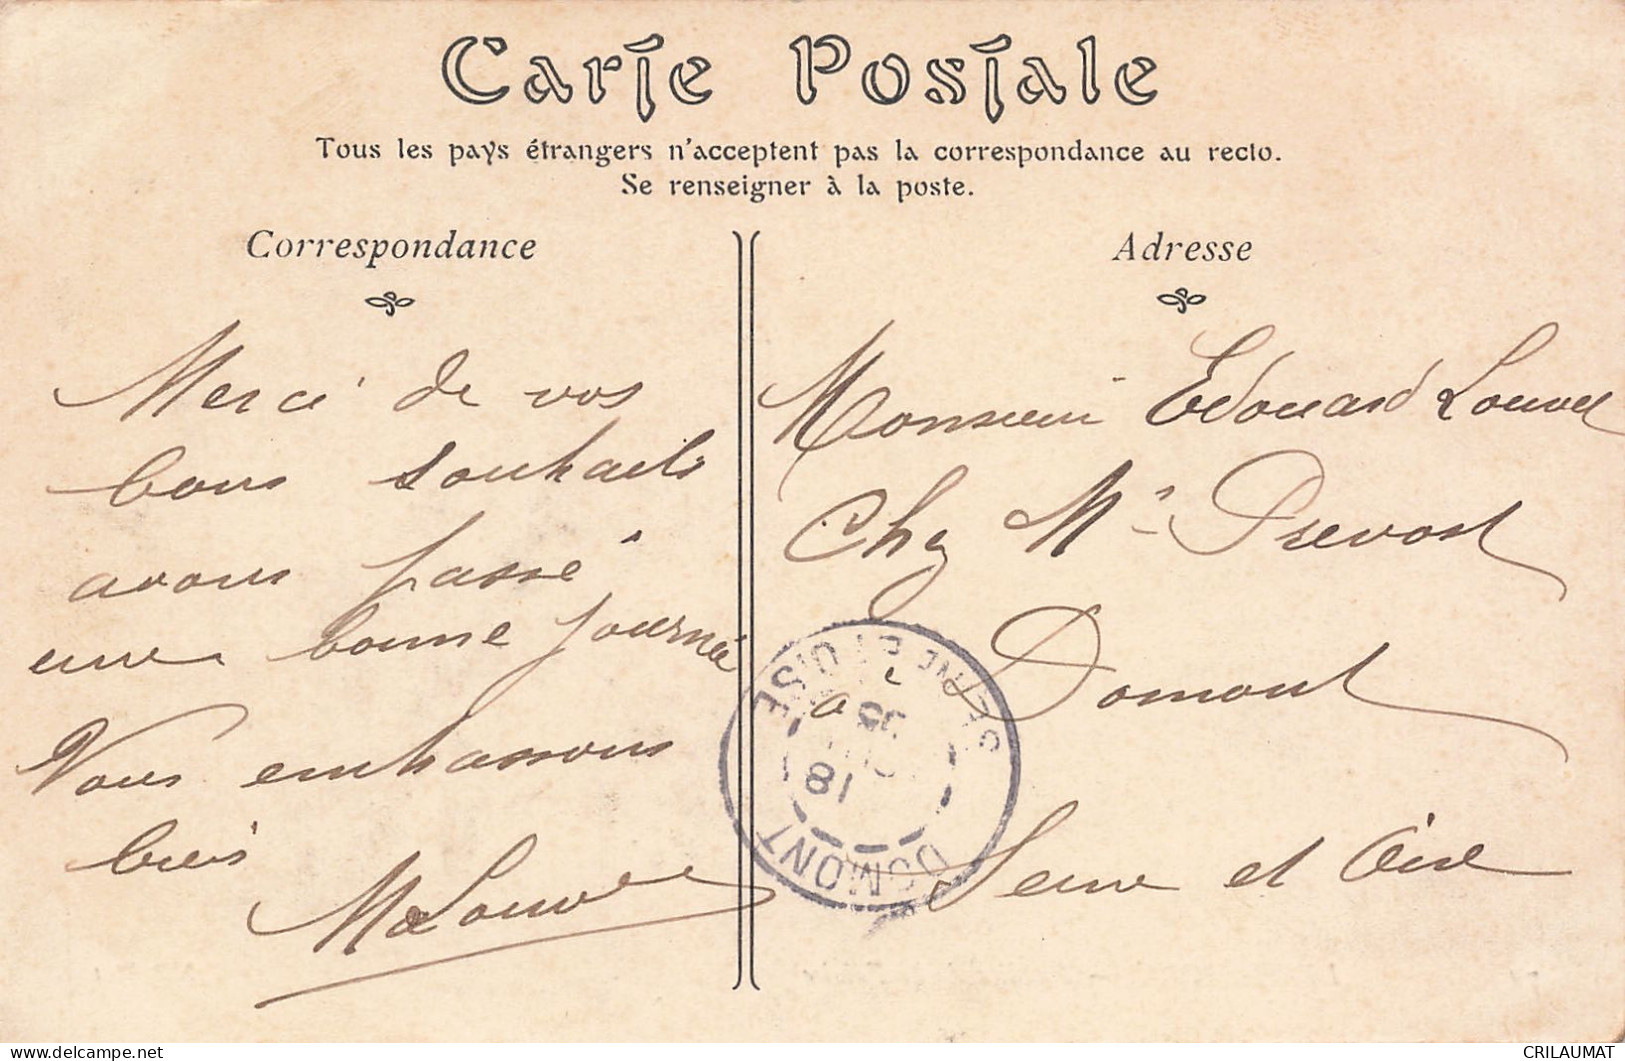 Carte Postale
Tous les pays étrangers n'acceptent pas la correspondance au recto.
Se renseigner à la poste.
Correspondance
Merci de vos
bons souhaits
avons passé
une bonne journée
Vous embrassons
bien
M Louvel
Adresse
Monsieur Edouard Louvel
Chez Mr Prevost
à Domont
Seine et Oise
DOMONT
SEINE ET OISE
18
CRILAUMAT